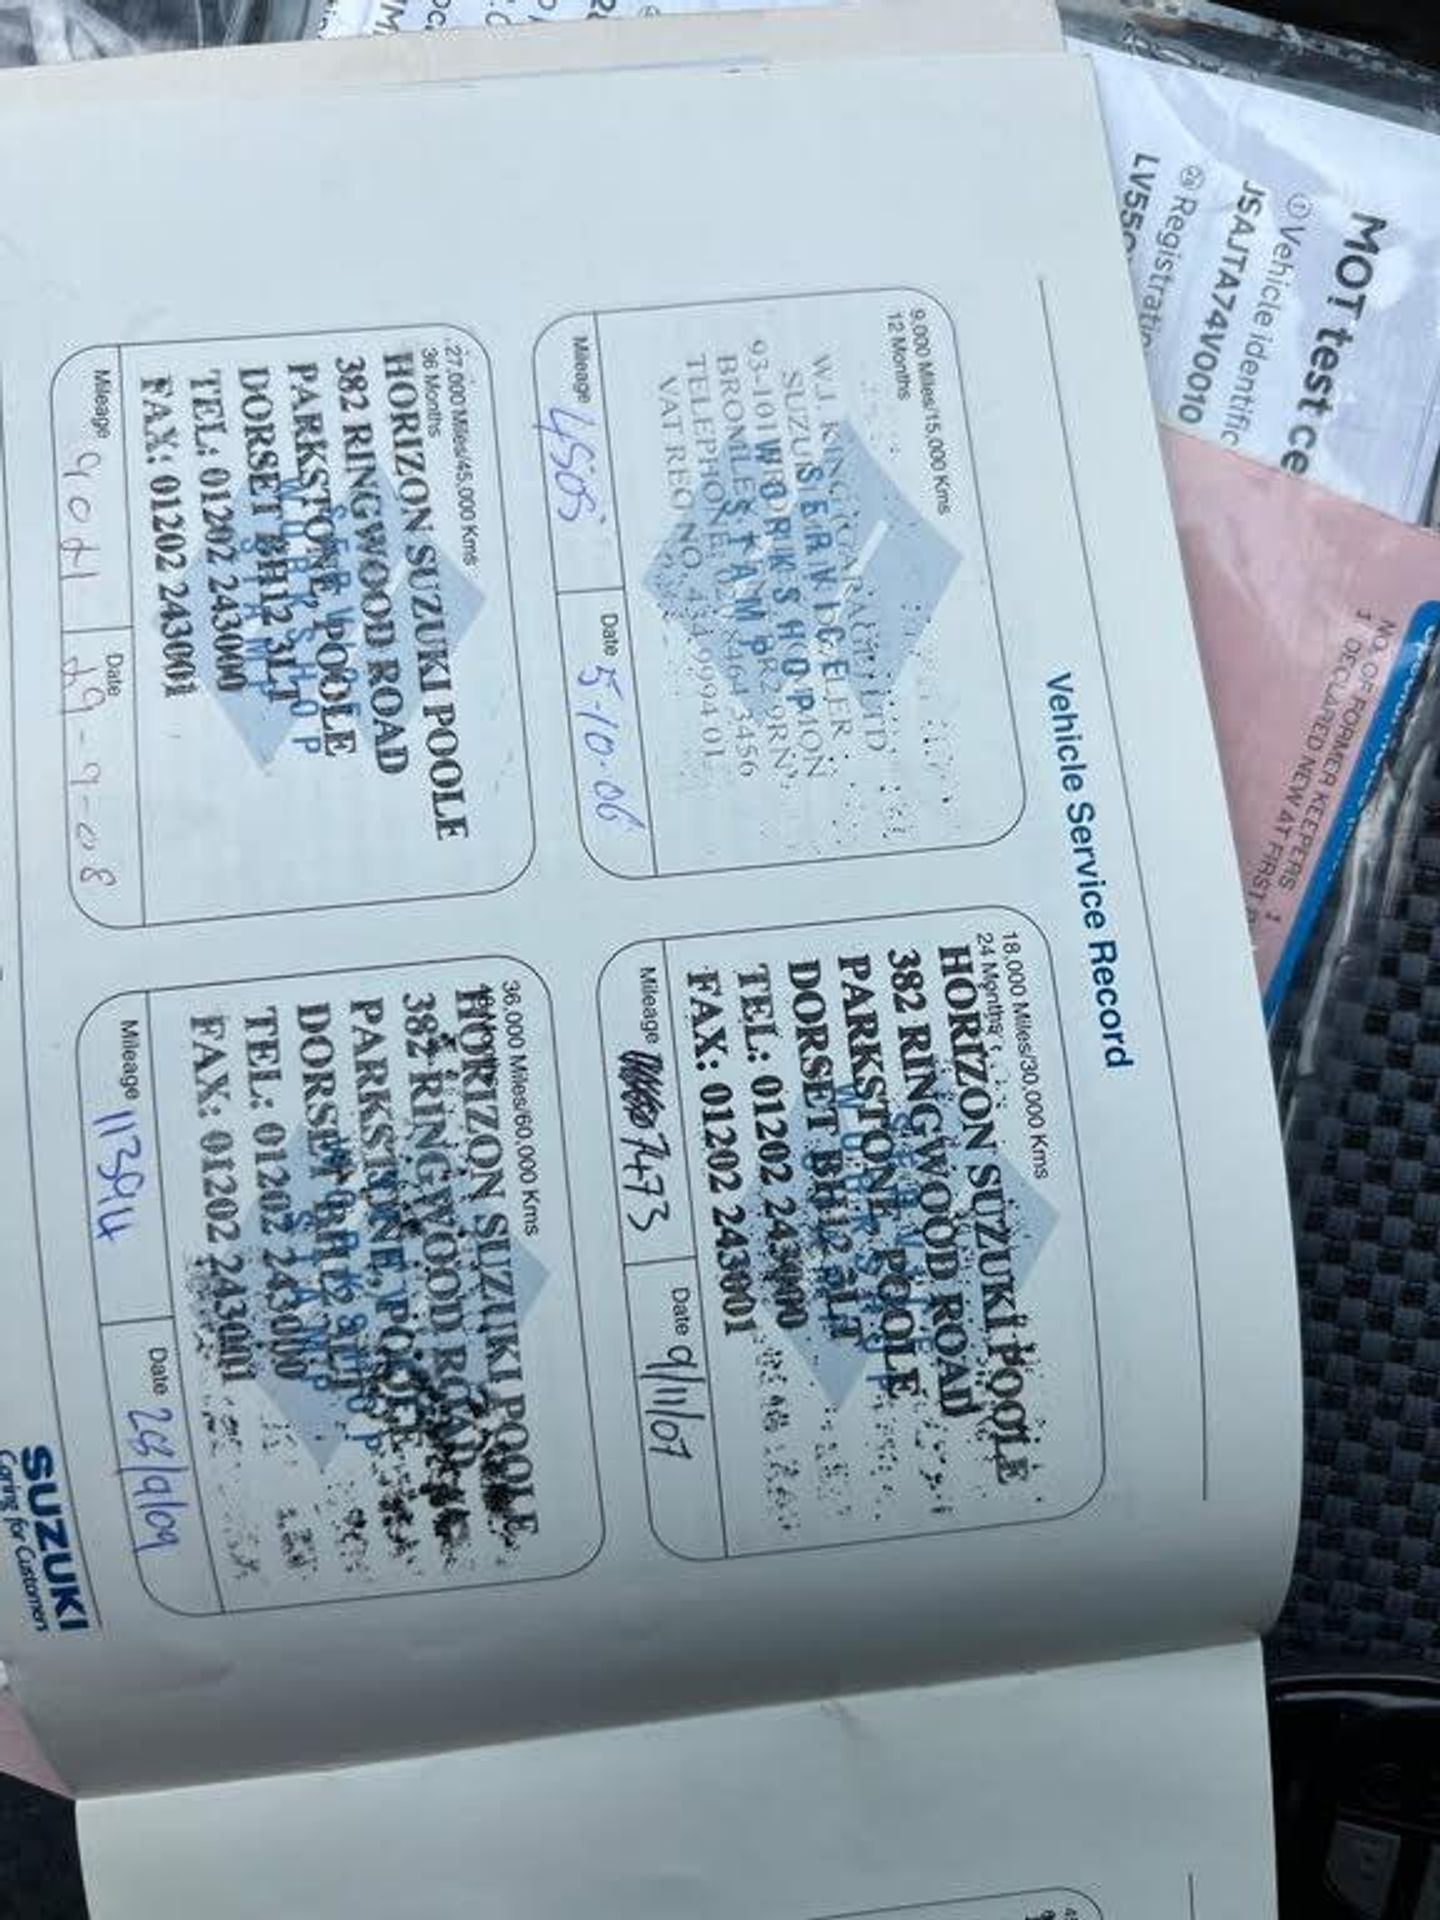 MOT test ce
① Vehicle identific
JSAJTA74V0010
Registratio
LV55O
NO. OF FORMER KEEPERS 1
1 DECLARED NEW AT FIRST
Vehicle Service Record
9,000 Miles/15,000 Kms
12 Months
W.J. KING GARAGE LTD
SUZUKI DEALER
93-101
BROMLEY
TELEPHONE: 020 8464 3456
VAT REG NO. 434 9994 01
SERVICE
WORKSHOP
STAMP
Mileage 4505
Date 5-10-06
18,000 Miles/30,000 Kms
24 Months
HORIZON SUZUKI POOLE
382 RINGWOOD ROAD
PARKSTONE, POOLE
DORSET BH12 3LT
TEL: 01202 243000
FAX: 01202 243001
SERVICE
WORKSHOP
STAMP
Mileage 7473
Date 9/11/07
27,000 Miles/45,000 Kms
36 Months
HORIZON SUZUKI POOLE
382 RINGWOOD ROAD
PARKSTONE, POOLE
DORSET BH12 3LT
TEL: 01202 243000
FAX: 01202 243001
SERVICE
WORKSHOP
STAMP
Mileage 9071
Date 29-9-08
36,000 Miles/60,000 Kms
48 Months
HORIZON SUZUKI POOLE
382 RINGWOOD ROAD
PARKSTONE, POOLE
DORSET BH12 3LT
TEL: 01202 243000
FAX: 01202 243001
WORKSHOP
STAMP
Mileage 11394
Date 28/9/09
SUZUKI
Caring for Customers